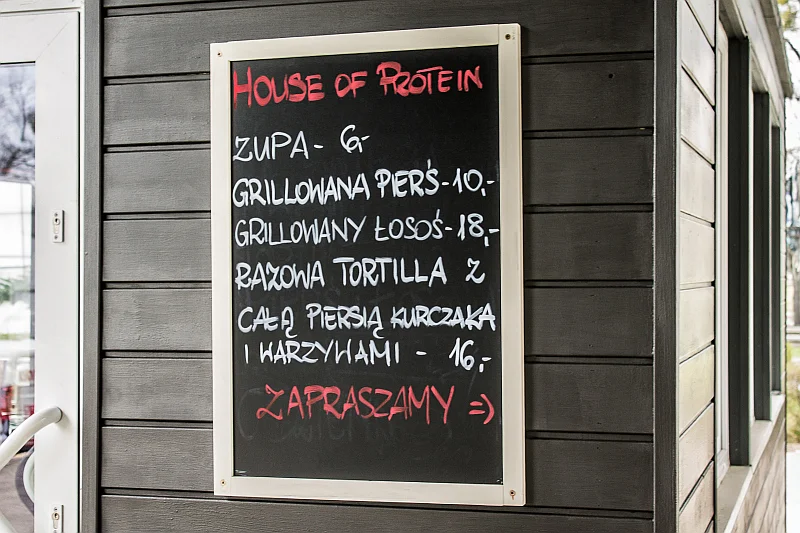 HOUSE OF PROTEIN
ZUPA - 6,-
GRILLOWANA PIERŚ - 10,-
GRILLOWANY ŁOSOŚ - 18,-
RAZOWA TORTILLA Z
CAŁĄ PIERSIĄ KURCZAKA
I WARZYWAMI - 16,-
ZAPRASZAMY =>